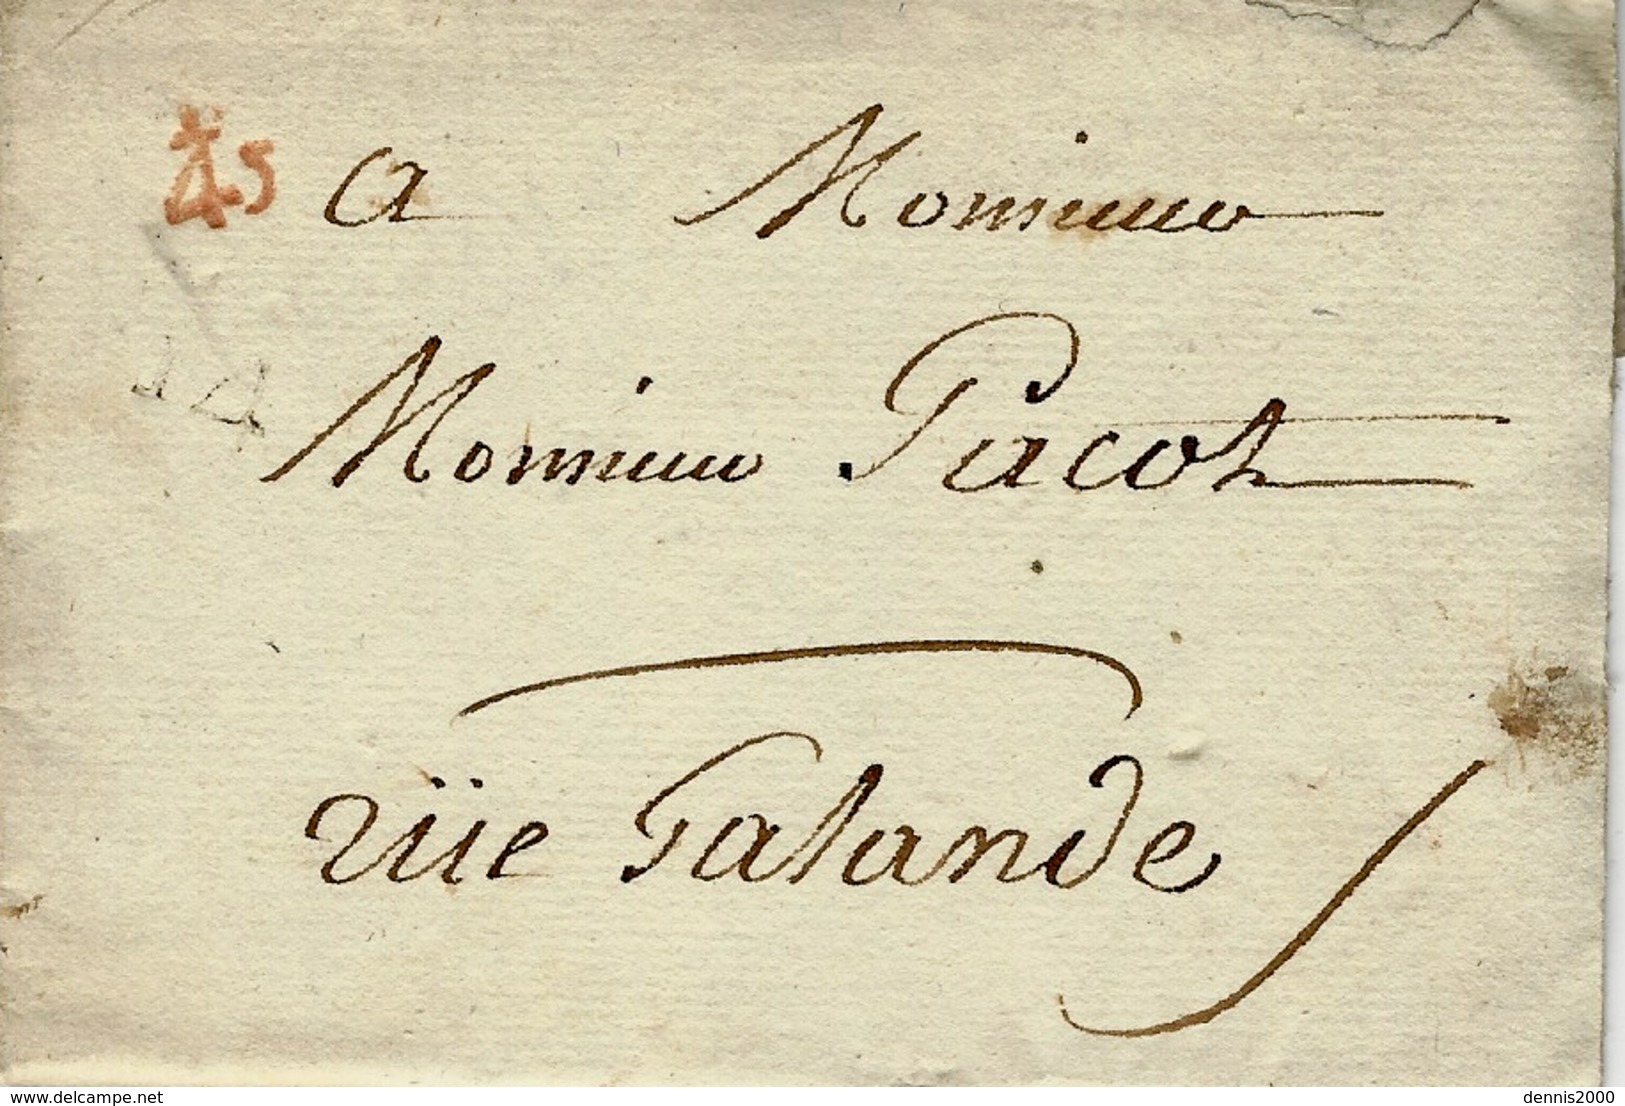 a Monsieur
Monsieur Pacot
rüe Galande
delcampe.net
dennis2000